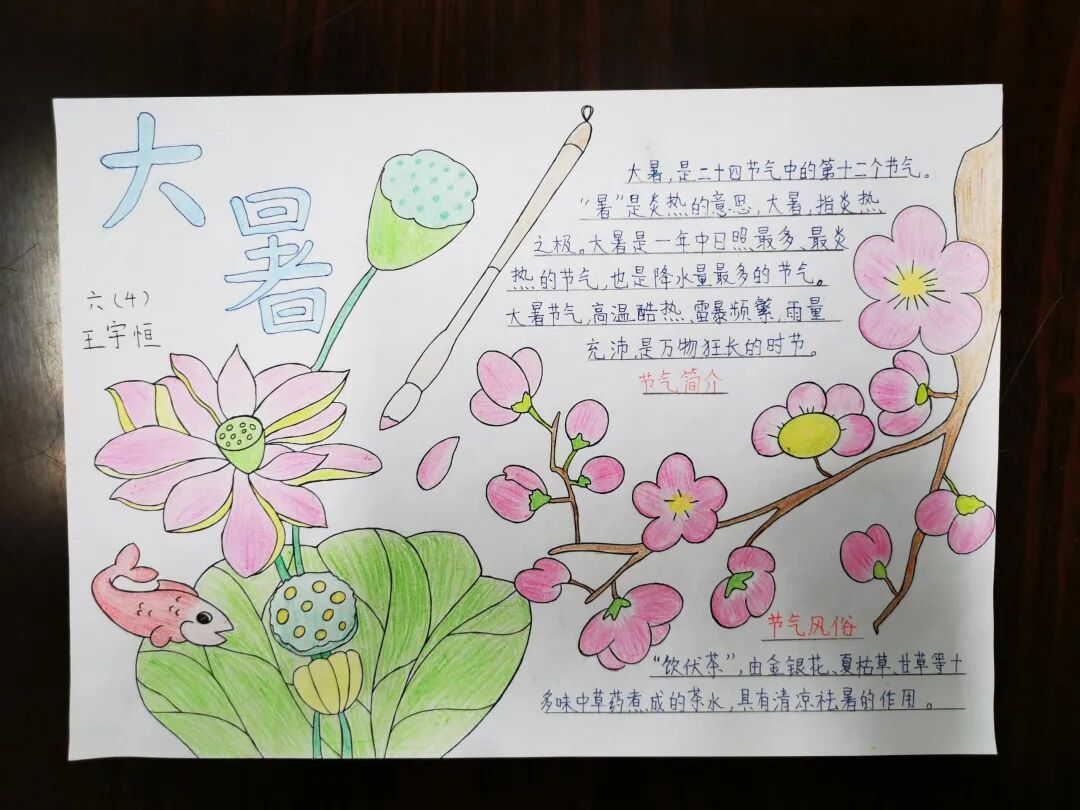 大暑
六(4)
王宇恒
大暑,是二十四节气中的第十二个节气。
“暑”是炎热的意思,大暑,指炎热
之极。大暑是一年中日照最多、最炎
热的节气,也是降水量最多的节气。
大暑节气,高温酷热、雷暴频繁,雨量
充沛,是万物狂长的时节。
节气简介
节气风俗
“饮伏茶”,由金银花、夏枯草、甘草等十
多味中草药煮成的茶水,具有清凉祛暑的作用。